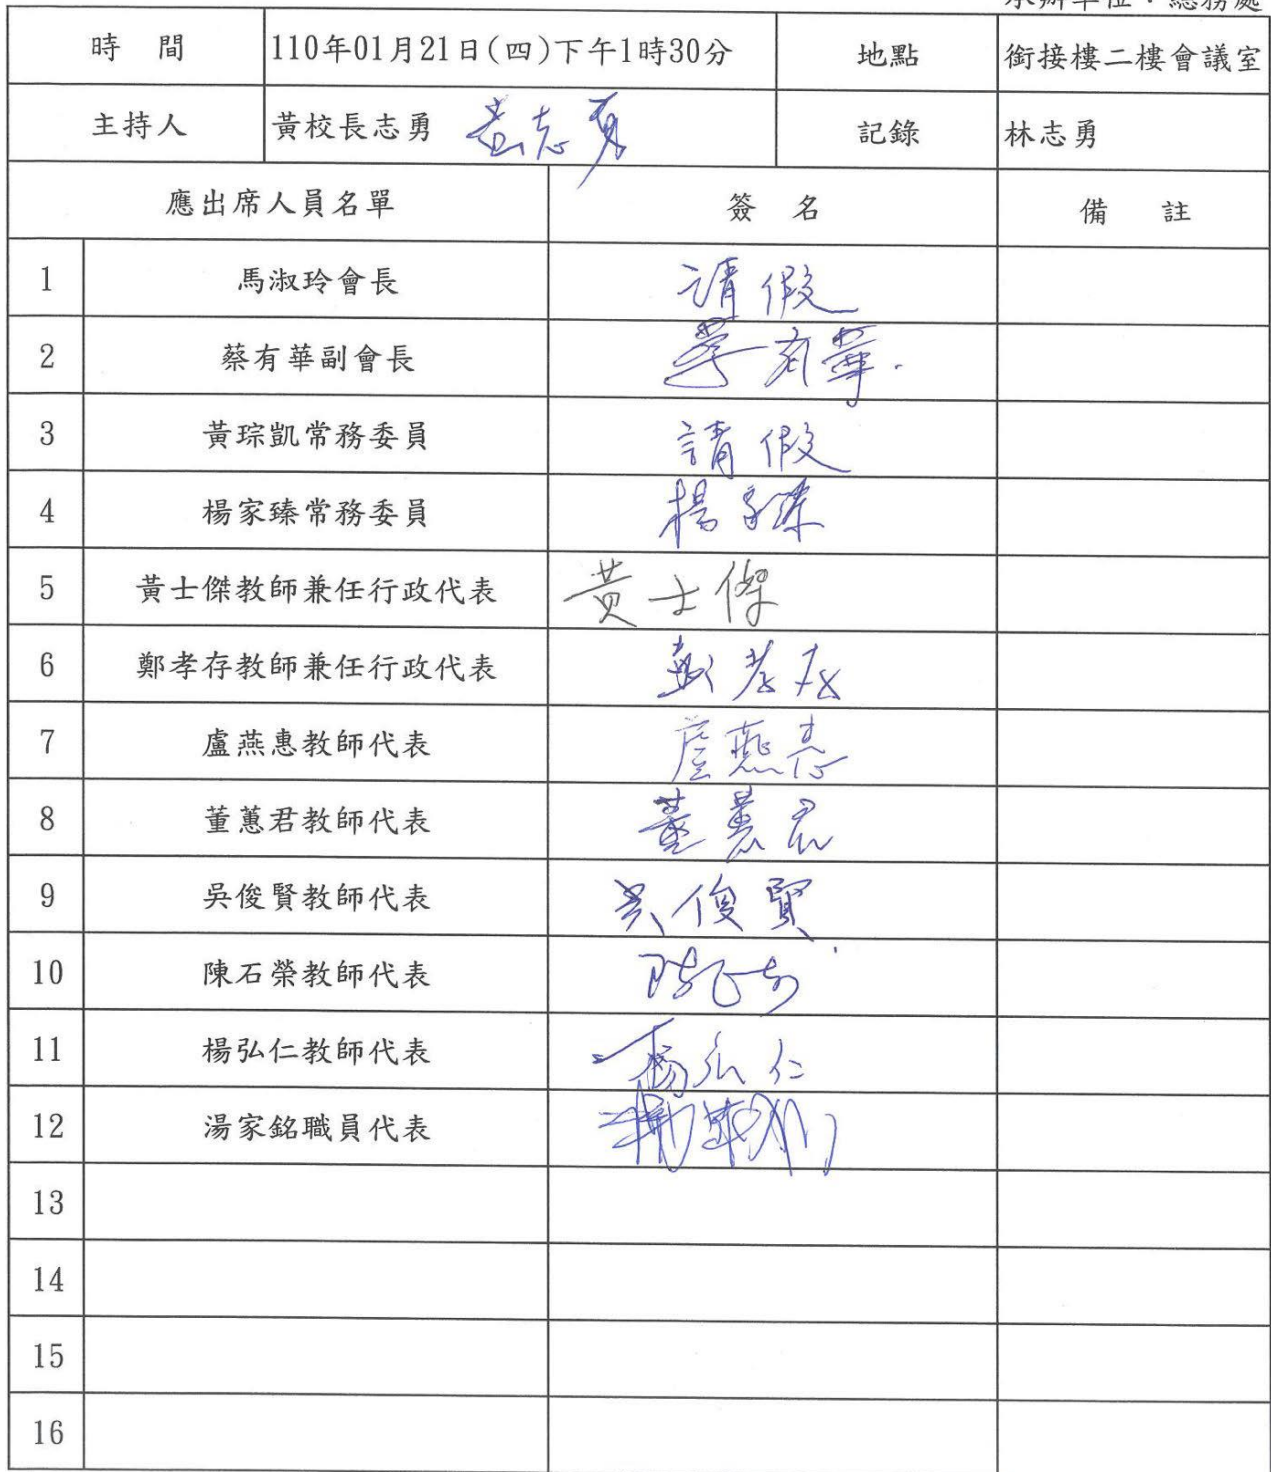 承辦單位：總務處
時 間 110年01月21日(四)下午1時30分 地點 銜接樓二樓會議室
主持人 黃校長志勇 黃志勇 記錄 林志勇
應出席人員名單 簽 名 備 註
1 馬淑玲會長 請假
2 蔡有華副會長 蔡有華
3 黃琮凱常務委員 請假
4 楊家臻常務委員 楊家臻
5 黃士傑教師兼任行政代表 黃士傑
6 鄭孝存教師兼任行政代表 鄭孝存
7 盧燕惠教師代表 盧燕惠
8 董蕙君教師代表 董蕙君
9 吳俊賢教師代表 吳俊賢
10 陳石榮教師代表
11 楊弘仁教師代表 楊弘仁
12 湯家銘職員代表
13
14
15
16